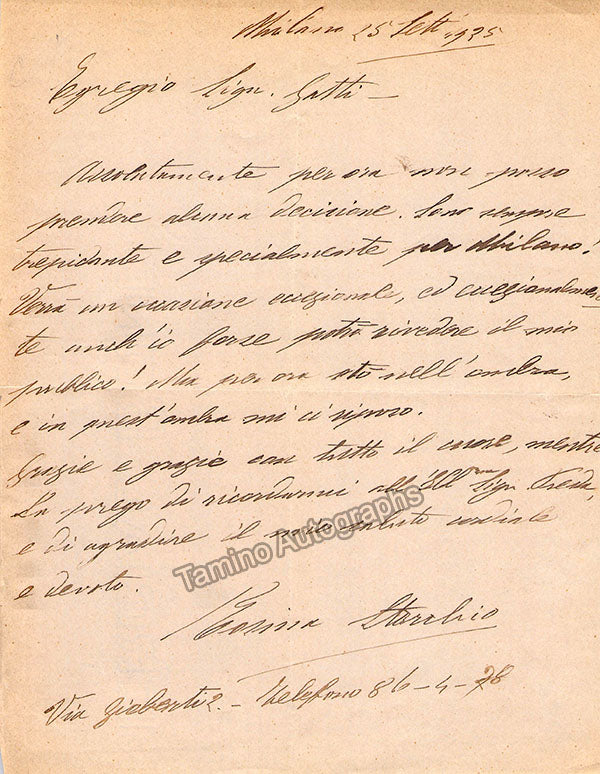 Milano 25 Sett. 1925
Egregio Sign. Gatti —
Assolutamente per ora non posso
prendere alcuna decisione. Sono sempre
trepidante e specialmente per Milano!
Verrà un occasione eccezionale, ed eccezionalmen
te anch'io forse potrò rivedere il mio
pubblico! Ma per ora sto nell'ombra,
e in quest'ombra mi ci riposo.
Grazie e grazie con tutto il cuore, mentre
La prego di ricordarmi all'Ill.mo Sign.
e di agradire il mio saluto cordiale
e devoto.
Rosina Storchio
Via Gioberti 2. — Telefono 86-4-78
Tamino Autographs